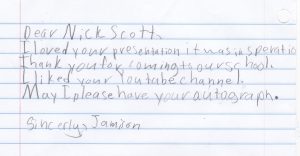 Dear Nick Scott,
I loved your presentation it was insperatio
Thank you for coming to our school.
I liked your Youtube channel.
May I please have your autograph.
Sincerly, Jamison